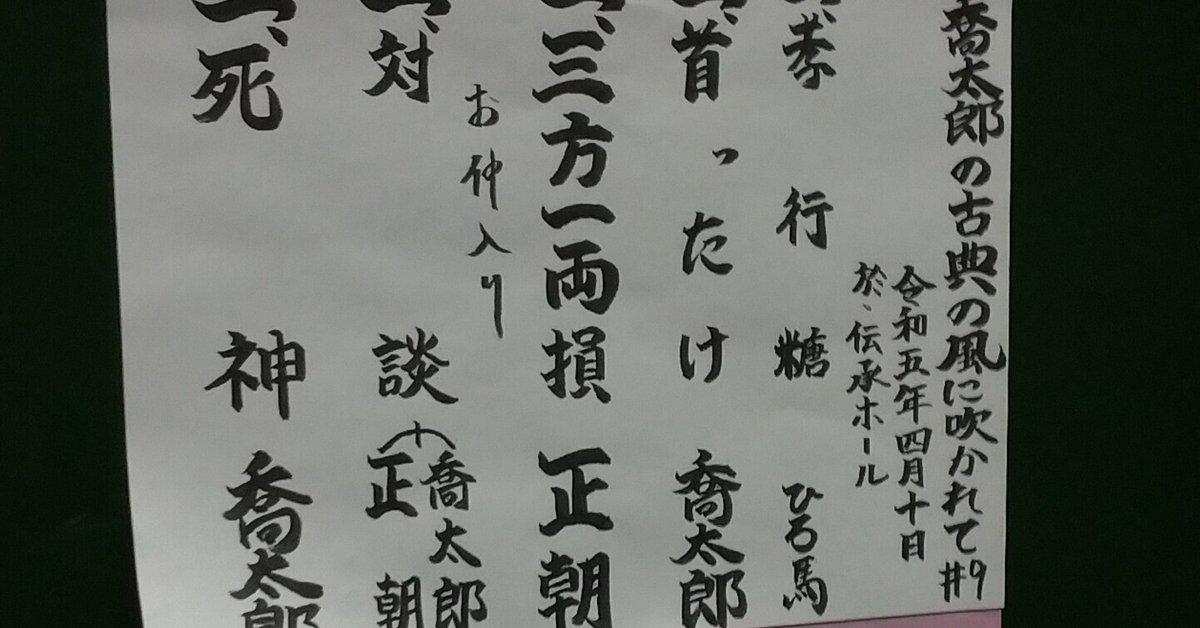 喬太郎の古典の風に吹かれて#9
令和五年四月十日
於、伝承ホール
一、孝行糖 ひろ馬
一、首ったけ 喬太郎
一、三方一両損 正朝
お仲入り
一、対談 喬太郎 正朝
一、死神 喬太郎